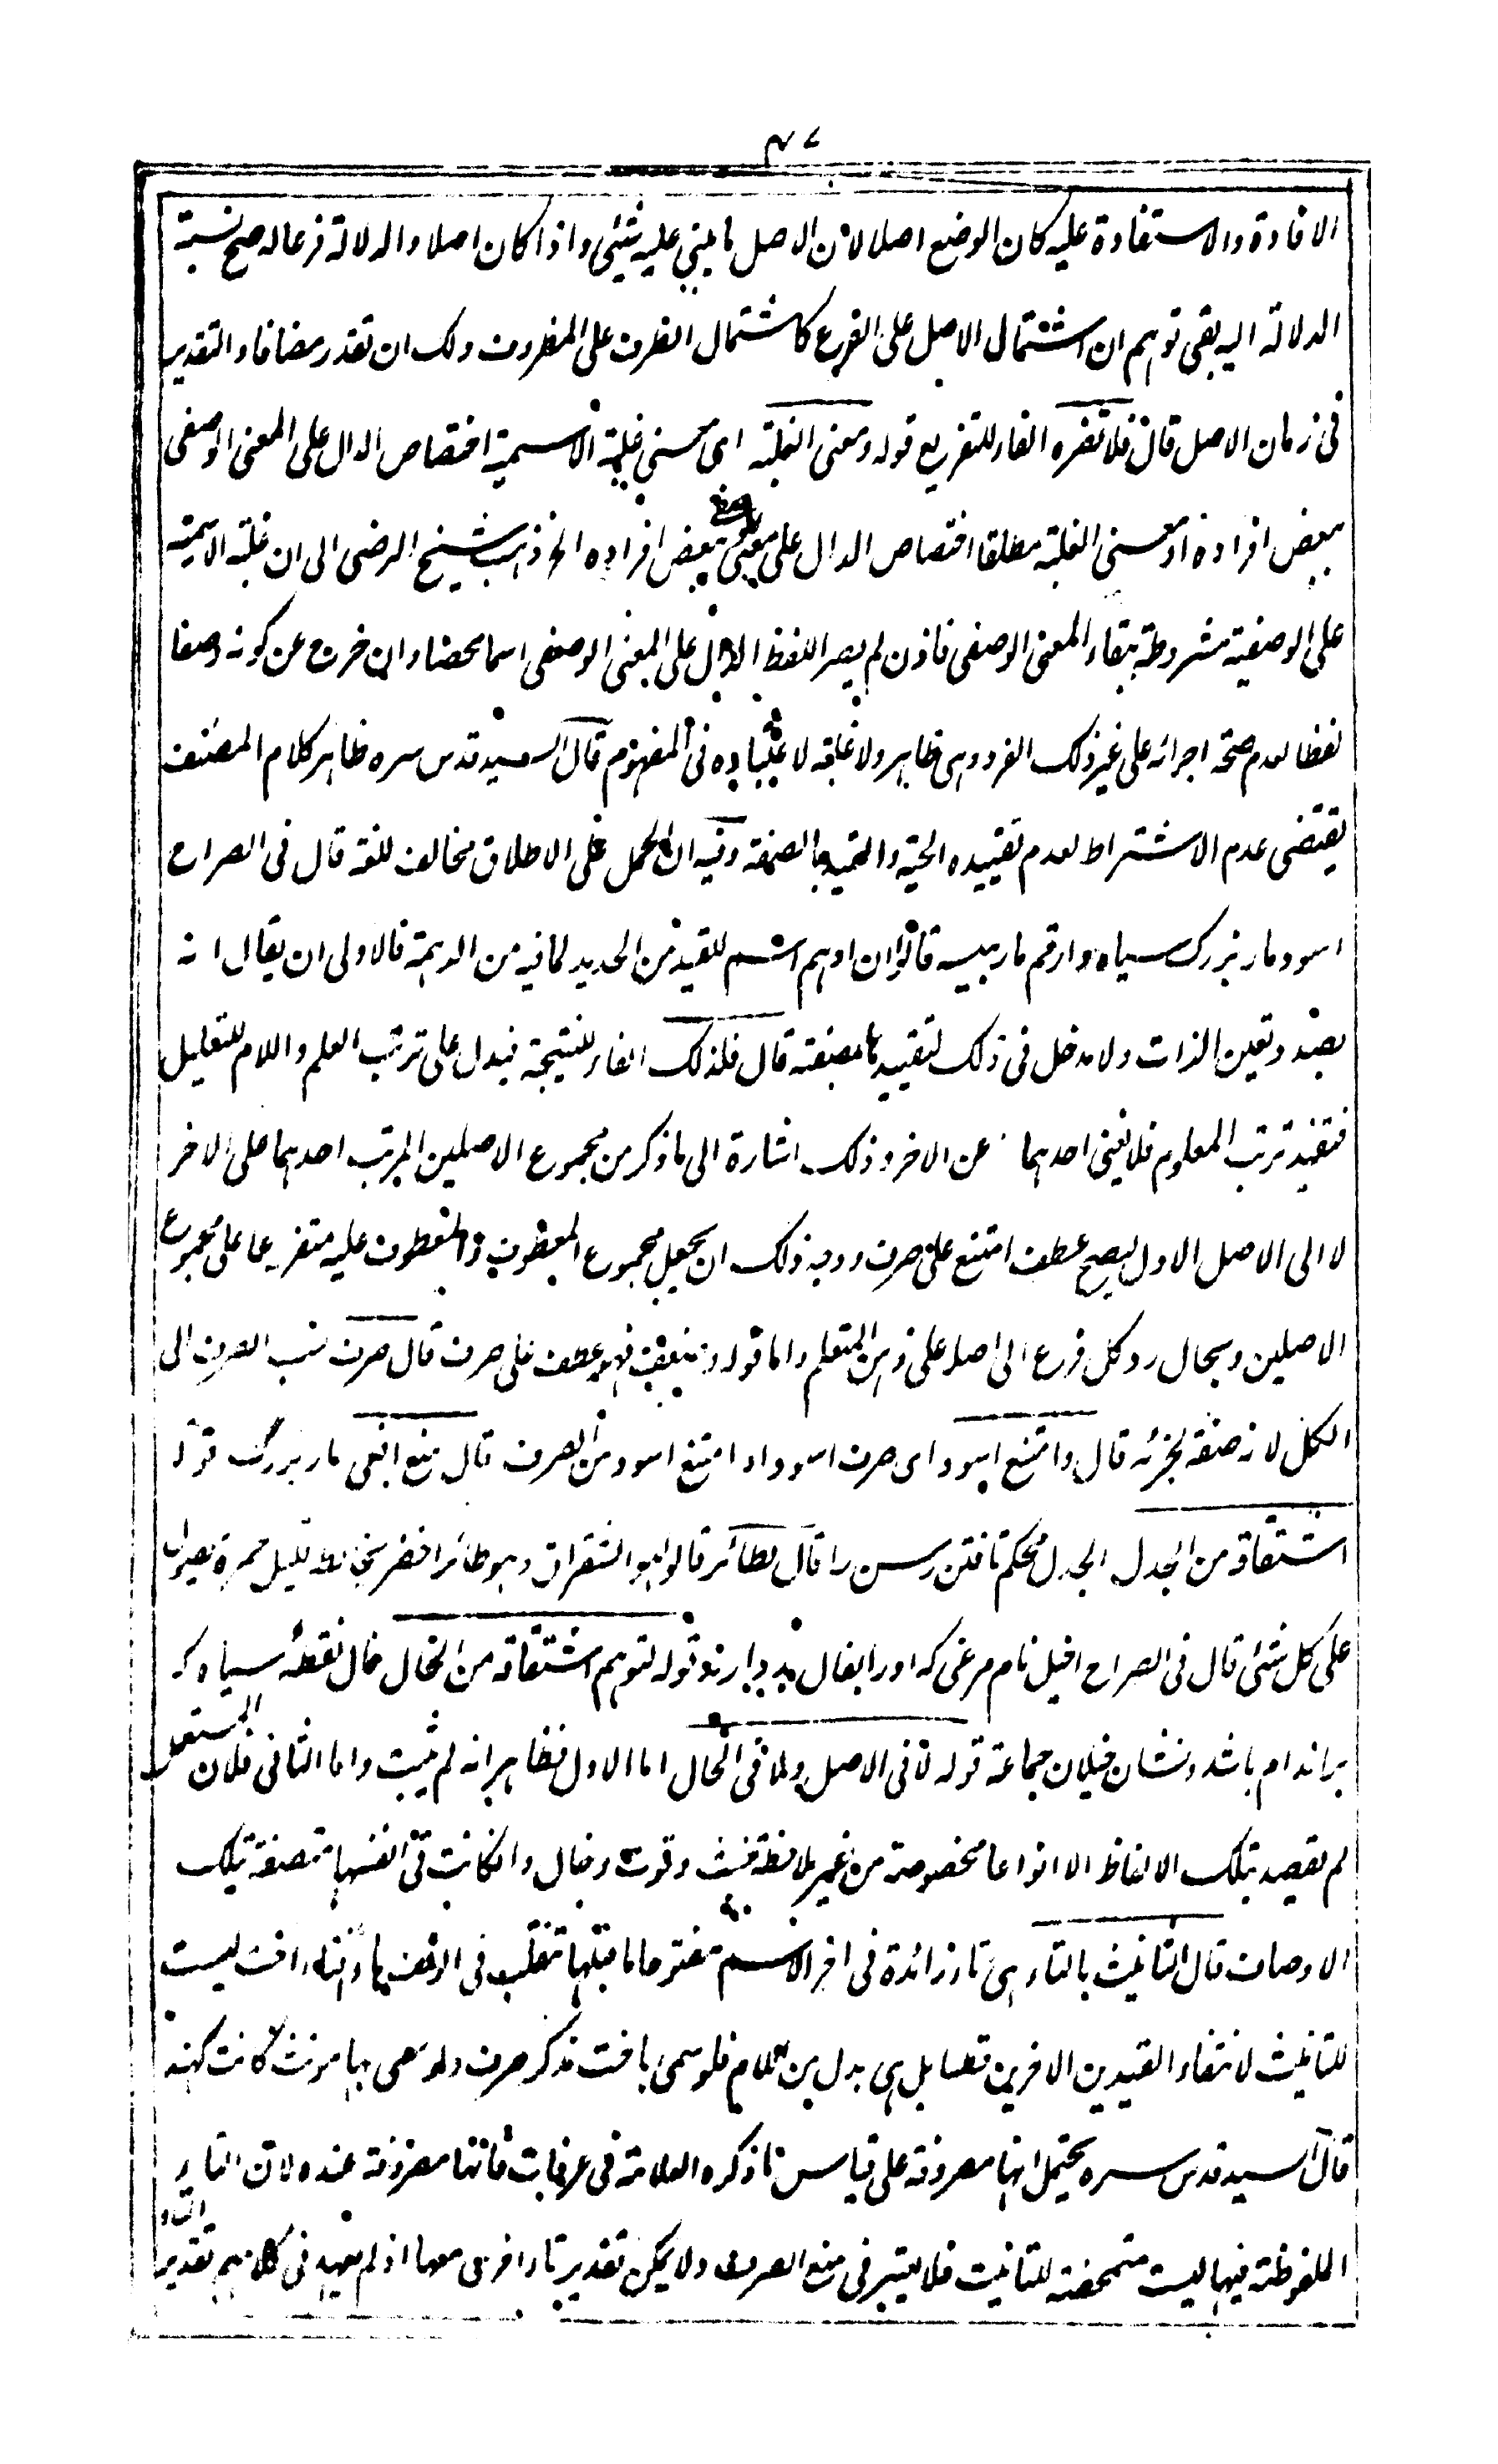 ٤٧
الافادة والاستفادة عليه كان الوضع اصلا لان الاصل ما يبنى عليه شئى واذا كان اصلا والدلالة فرعا له صح نسبة
الدلالة اليه بقى توهم ان اشتمال الاصل على الفرع كاشتمال الظرف على المظروف ولك ان تقدر مضافا والتقدير
فى زمان الاصل قال فلا تضره الفاء للتفريع قوله ومعنى الغلبة اى معنى غلبة الاسمية اختصاص الدال على المعنى الوصفى
ببعض افراده او معنى الغلبة مطلقا اختصاص الدال على معنى ببعض افراده الخ ذهب الشيخ الرضى الى ان غلبة الاسمية
على الوصفية مشروطة ببقاء المعنى الوصفى فاذن لم يصر اللفظ الدال على المعنى الوصفى اسما محضا وان خرج عن كونه وصفا
لفظا لعدم صحة اجرائه على غير ذلك الفرد وهى ظاهر ولا غلبة لاعتباره فى المفهوم قال السيد قدس سره ظاهر كلام المصنف
يقتضى عدم الاشتراط لعدم تقييده الحية والقيد بالصفة وفيه ان الحمل على الاطلاق مخالف للغة قال فى الصراح
اسود مار بزرك سياه وارقم مار پيسه قالوا ان ادهم اسم للقيد من الحديد لما فيه من الدهمة فالاولى ان يقال انه
بصدد تعين الذات ولا مدخل فى ذلك لتقييدها بصفة قال فلذلك الفاء للنتيجة فيدل على ترتب العلم واللام للتعليل
فتفيد ترتب المعلوم فلا يغنى احدهما عن الاخر وذلك اشارة الى ما ذكر من مجموع الاصلين المرتب احدهما على الاخر
لا الى الاصل الاول ليصح عطف امتنع على صرف ووجه ذلك ان يجعل مجموع المعطوف والمعطوف عليه متفرعا على مجموع
الاصلين ويحال رد كل فرع الى اصله على ذهن المتعلم واما قوله وضعف فهو عطف على صرف قال صرف نسب الصرف الى
الكل لانه صفة لجزئه قال وامتنع اسود اى صرف اسود اذا امتنع اسود من الصرف قال منع افعى مار بزرگ قوله
اشتقاقه من الجدل الجدل محكم تافتن رسن را قال لطائر قالوا هو الشقراق وهو طائر اخضر يخالطه قليل حمرة يصول
على كل شئى قال فى الصراح اخيل نام مرغى كه اورا بفال بد دارند قوله لتوهم اشتقاقه من الخال خال نقطه سياه كه
بر اندام باشد ونشان خيلان جماعة قوله لا فى الاصل ولا فى الحال اما الاول فظاهر انه لم يثبت واما الثانى فلان المستعمل
لم يقصد بتلك الالفاظ الا انواعا مخصوصة من غير ملاحظة خبث وقوة وخال وان كانت فى انفسها متصفة بتلك
الاوصاف قال التانيث بالتاء هى تاء زائدة فى اخر الاسم مفتوحا ما قبلها تنقلب فى الوقف هاء فتاء اخت ليست
للتانيث لانتفاء القيدين الاخرين قطعا بل هى بدل من اللام فلو سمى باخت مذكر صرف ولو سمى بها مونث كانت كهند
قال السيد قدس سره يحتمل انها مصروفة على قياس ما ذكره العلامة فى عرفات فانها مصروفة عنده لان التاء
الملفوظة فيها ليست متمحضة للتانيث فلا يعتبر فى منع الصرف ولا يمكن تقدير تاء اخرى معها اذ لم يعهد فى كلامهم تقدير التاء